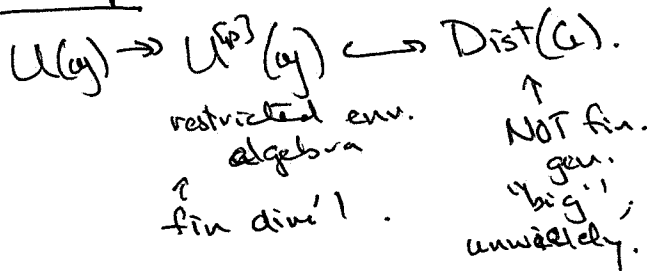 U(𝔤) ↠ U^{[p]}(𝔤) ↪ Dist(G).
restricted env. algebra
↑
fin dim'l.
↑
NOT fin.
gen.
"big",
unwieldy.